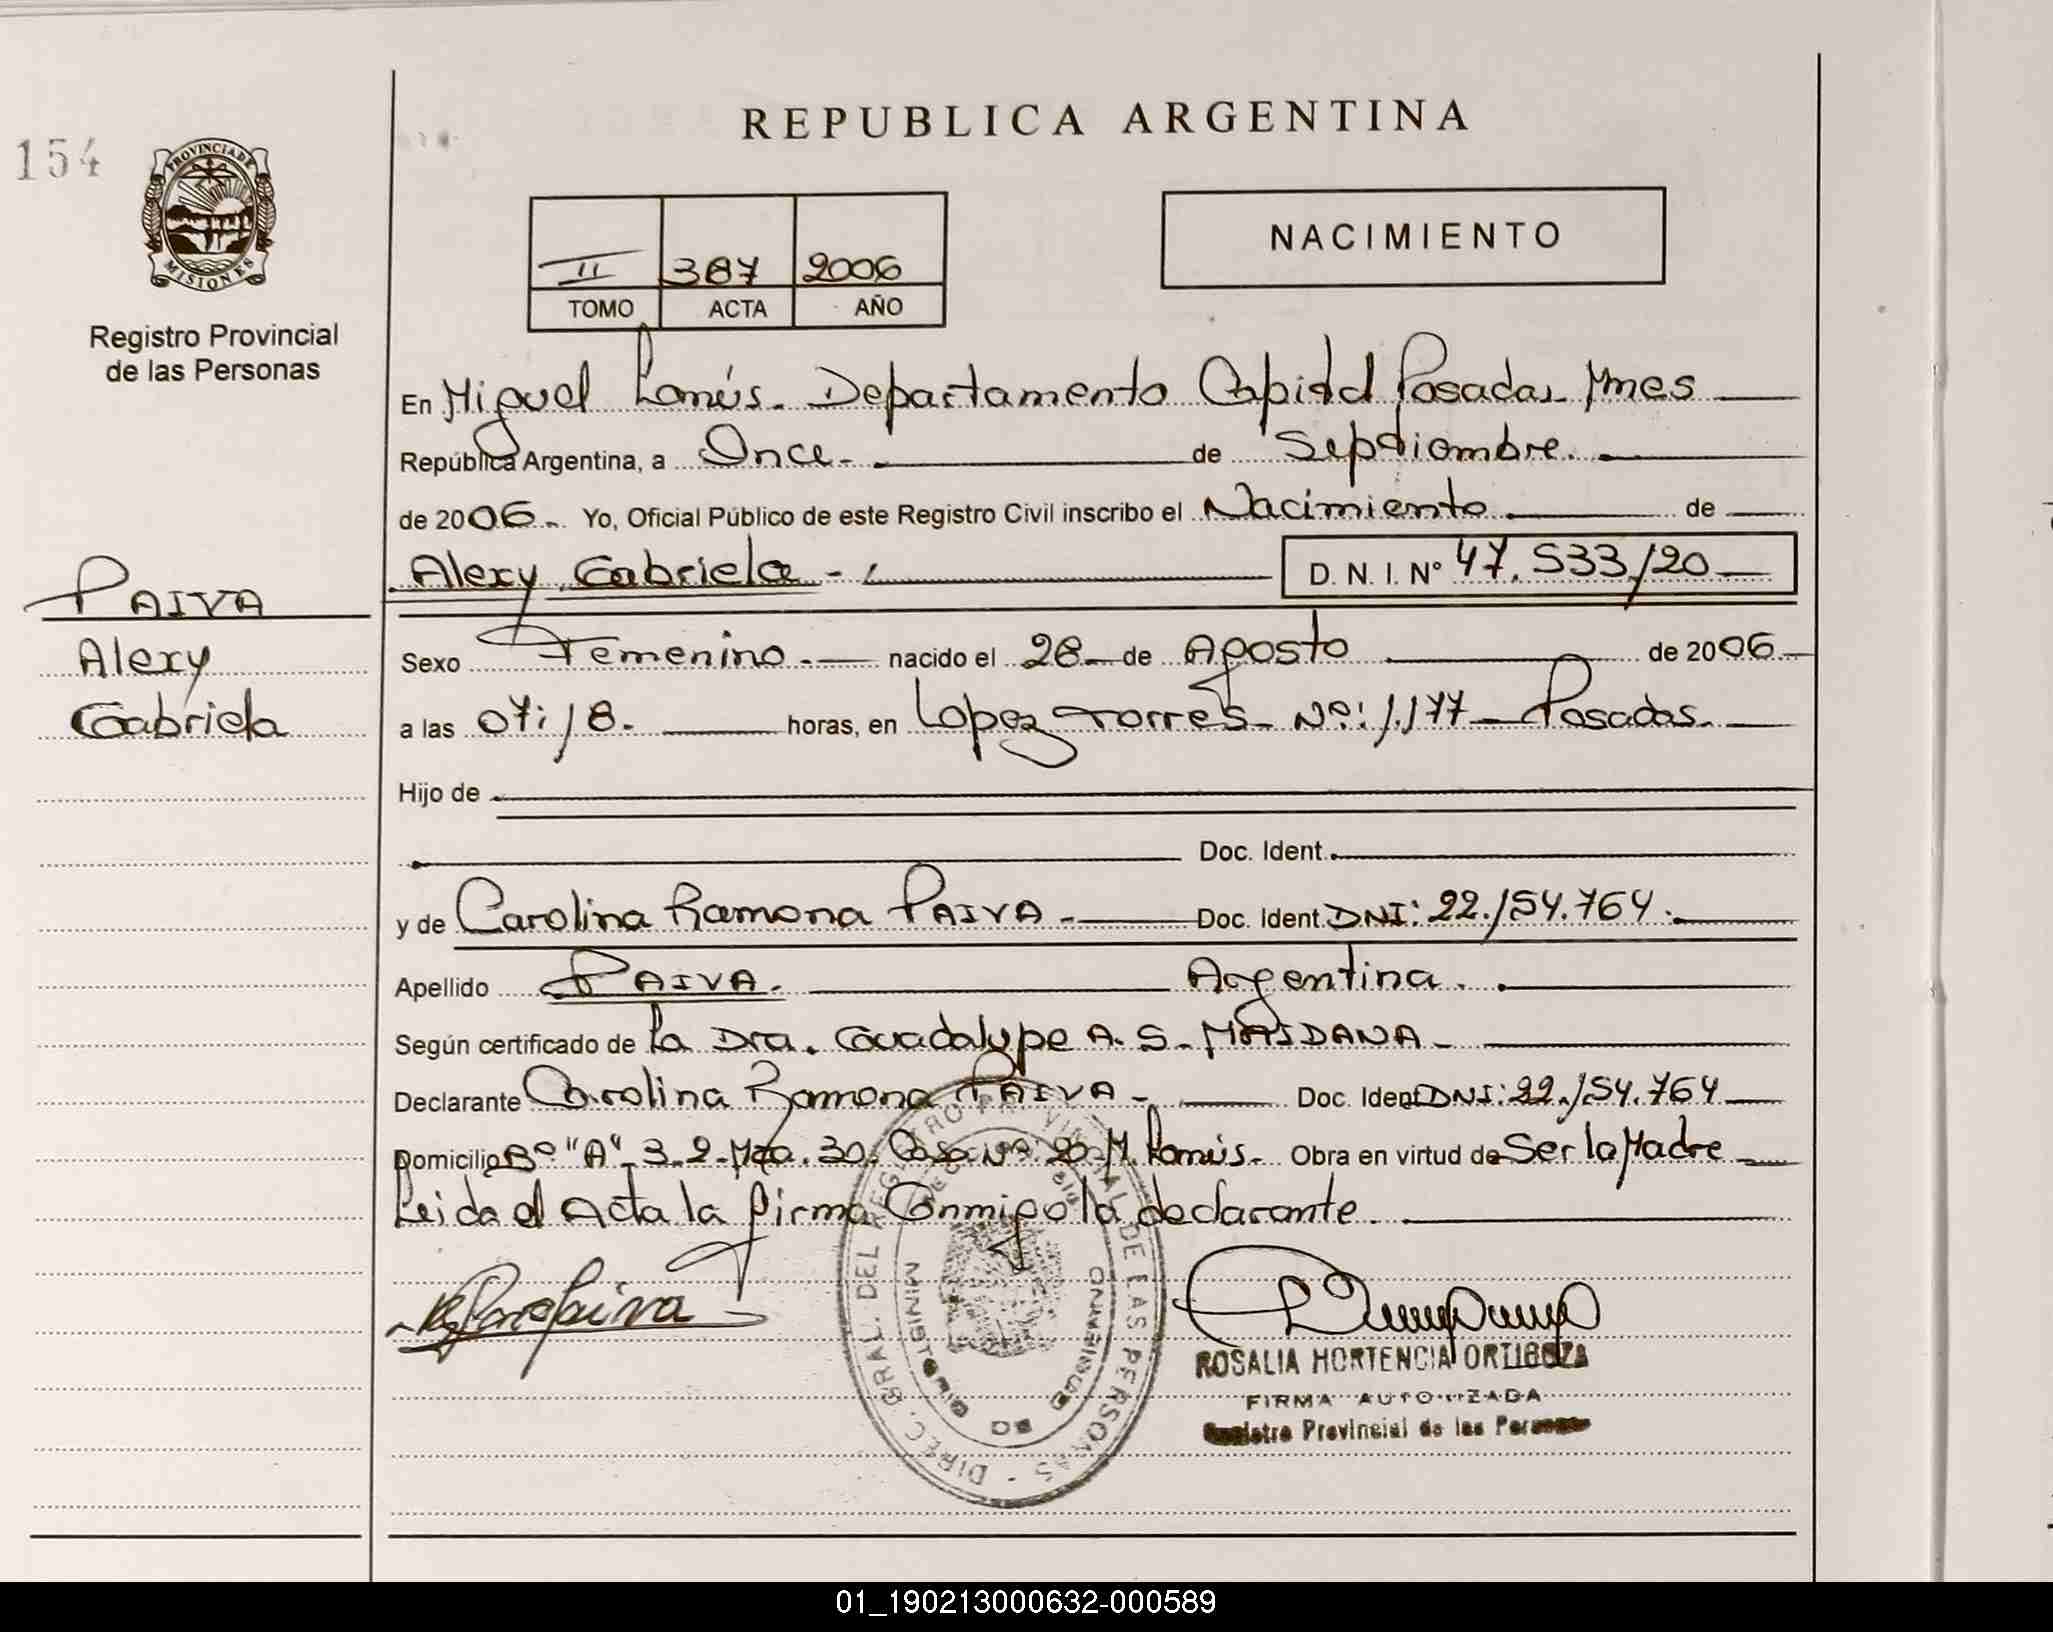 REPUBLICA ARGENTINA
154
PROVINCIA DE
MISIONES
Registro Provincial
de las Personas
NACIMIENTO
II 387 2006
TOMO ACTA AÑO
En Miguel Lanús. Departamento Capital Posadas Mnes
República Argentina, a Once de Septiembre.
de 2006. Yo, Oficial Público de este Registro Civil inscribo el Nacimiento de
Alexy Gabriela D. N. I. Nº 47.533.120
PAIVA
Alexy
Gabriela
Sexo Femenino. nacido el 28 de Agosto de 2006
a las 07:18. horas, en Lopez Torres Nº: 1.177 Posadas.
Hijo de
Doc. Ident.
y de Carolina Ramona PAIVA Doc. Ident. DNI: 22.154.764.
Apellido PAIVA. Argentina.
Según certificado de La Dra. Guadalupe A. S. MAIDANA
Declarante Carolina Ramona PAIVA Doc. Ident DNI: 22.154.764
Domicilio Bº "A" 3.2 Mza. 30. Casa Nº 20 M. Lanús. Obra en virtud de Ser la Madre
Leida el Acta la firma Conmigo la declarante.
DIREC. GRAL. DEL REGISTRO PROVINCIAL DE LAS PERSONAS
MINISTERIO DE GOBIERNO
ROSALIA HORTENCIA ORTIGOZA
FIRMA AUTORIZADA
Registro Provincial de las Personas
01_190213000632-000589